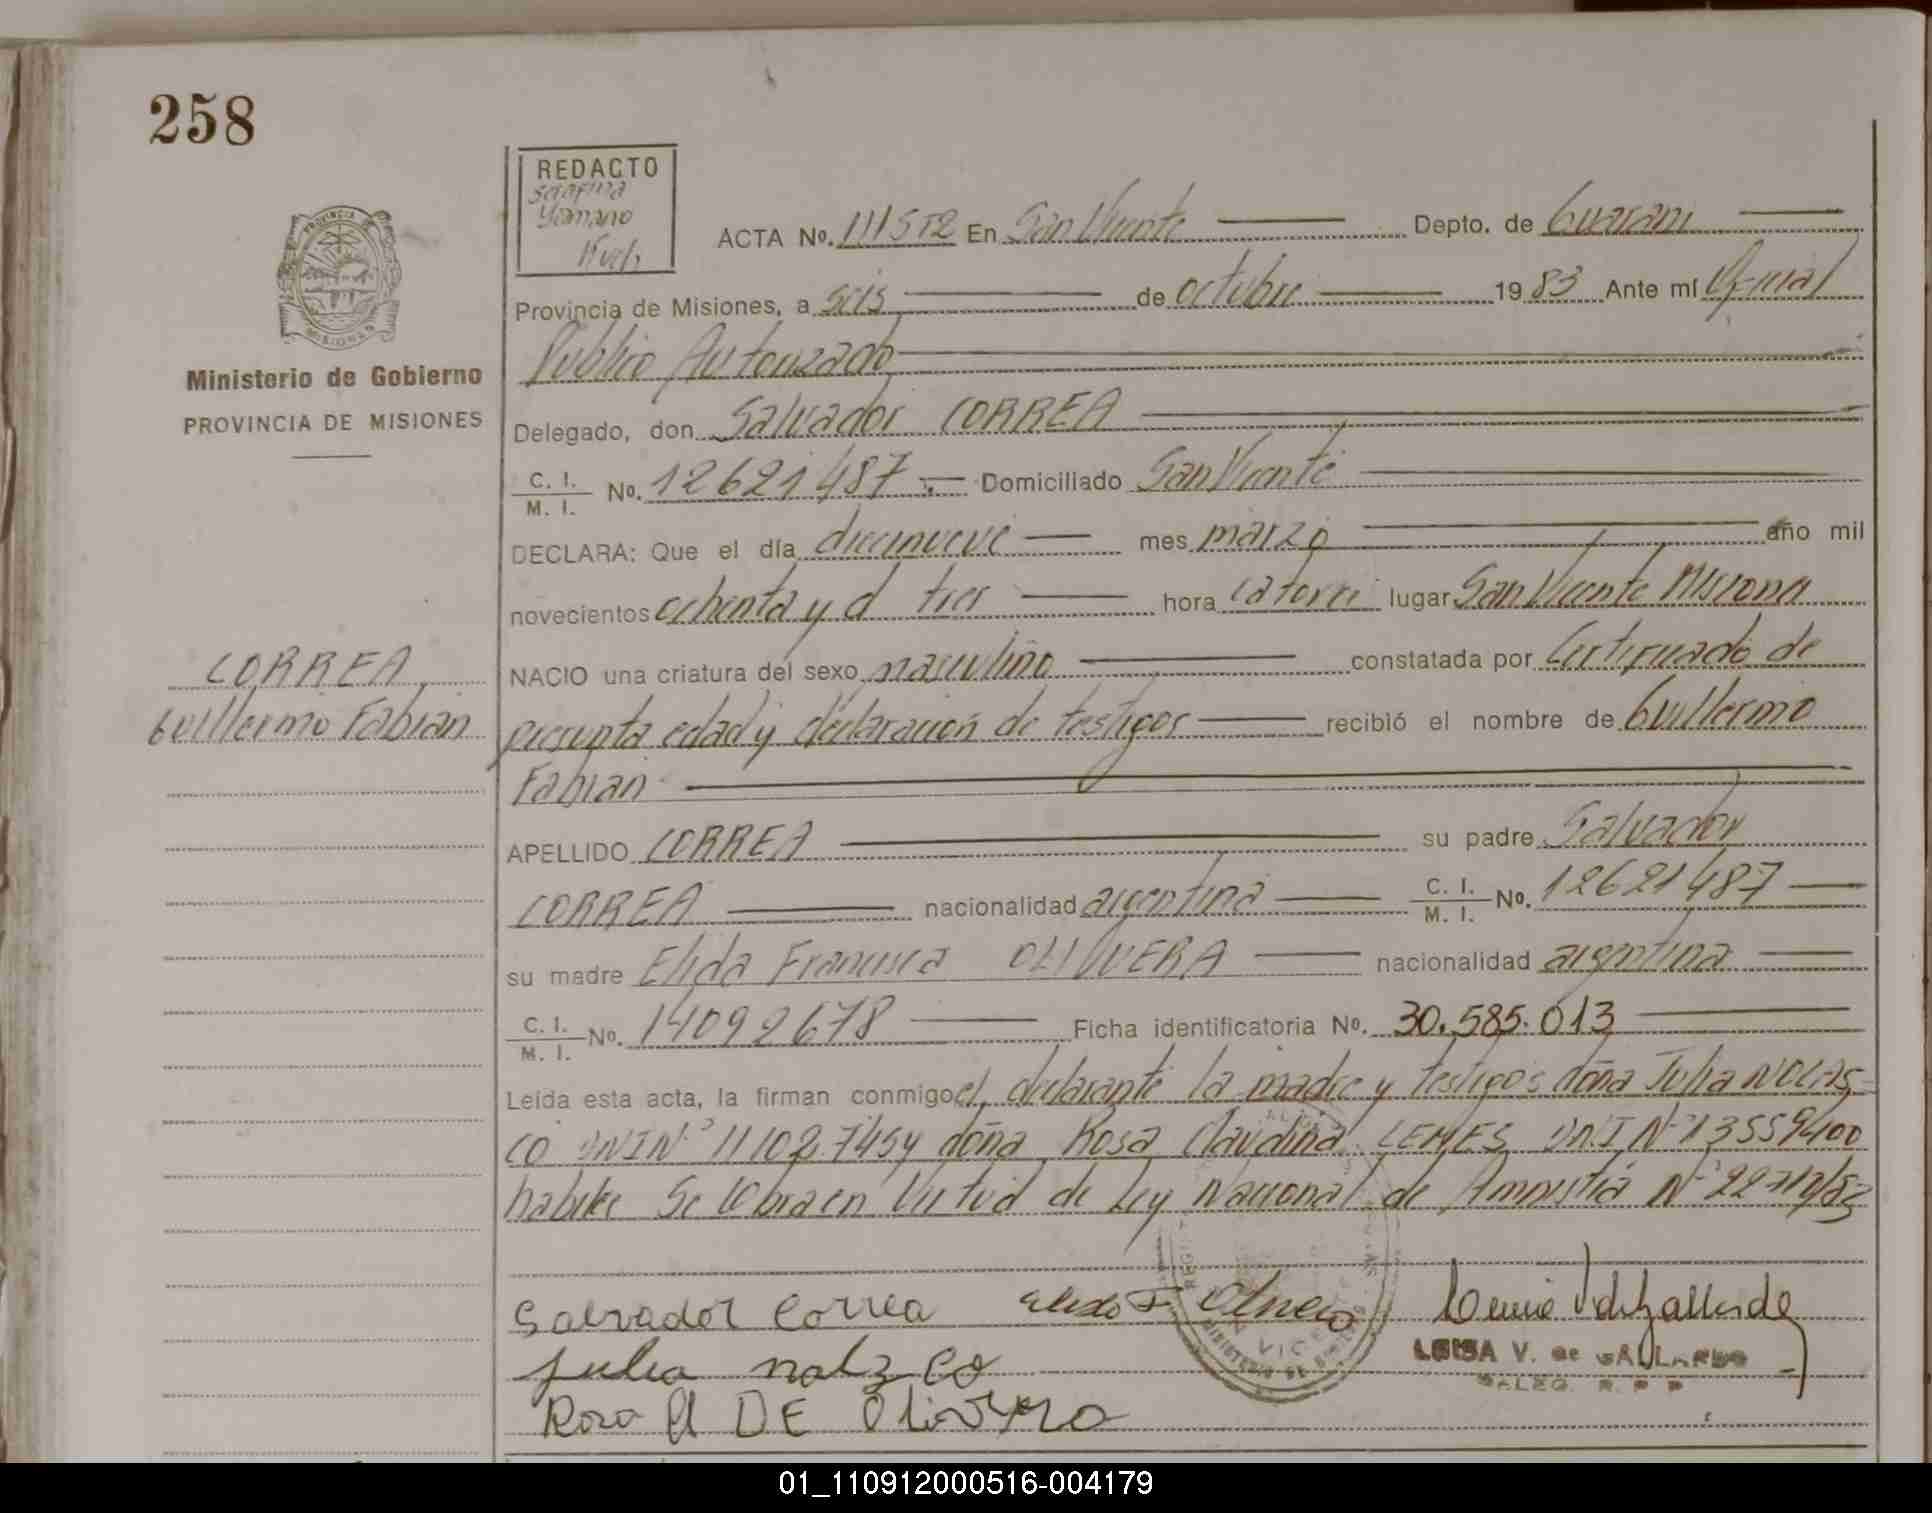 258
REDACTO
Serafina
ACTA No. 111/572 En San Vicente Depto. de Guarani
Provincia de Misiones, a seis de octubre 1983 Ante mí Oficial
Publico Autorizado
PROVINCIA
MISIONES
Ministerio de Gobierno
PROVINCIA DE MISIONES
Delegado, don Salvador CORREA
C. I.
M. I. No. 12621487 Domiciliado San Vicente
DECLARA: Que el día diecinueve mes marzo año mil
novecientos ochenta y d tres hora catorce lugar San Vicente Misiones
NACIO una criatura del sexo masculino constatada por Certificado de
presunta edad y declaración de testigos recibió el nombre de Guillermo
Fabian
CORREA
Guillermo Fabian
APELLIDO CORREA su padre Salvador
CORREA nacionalidad argentina C. I. M. I. No. 12621487
su madre Elida Francisca OLIVERA nacionalidad argentina
C. I. M. I. No. 14092678 Ficha identificatoria No. 30.585.013
Leída esta acta, la firman conmigo el declarante la madre y testigos doña Julia NOLAS=
CO DNI Nº doña Rosa Claudina LEMES DNI Nº 13559400
habiles Se labra en Virtud de Ley Nacional de Amnistia Nº
Salvador Correa
LUISA V. de GALLARDO
DELEG. R. P. P.
Julia
Rosa DE Olivera
01_110912000516-004179